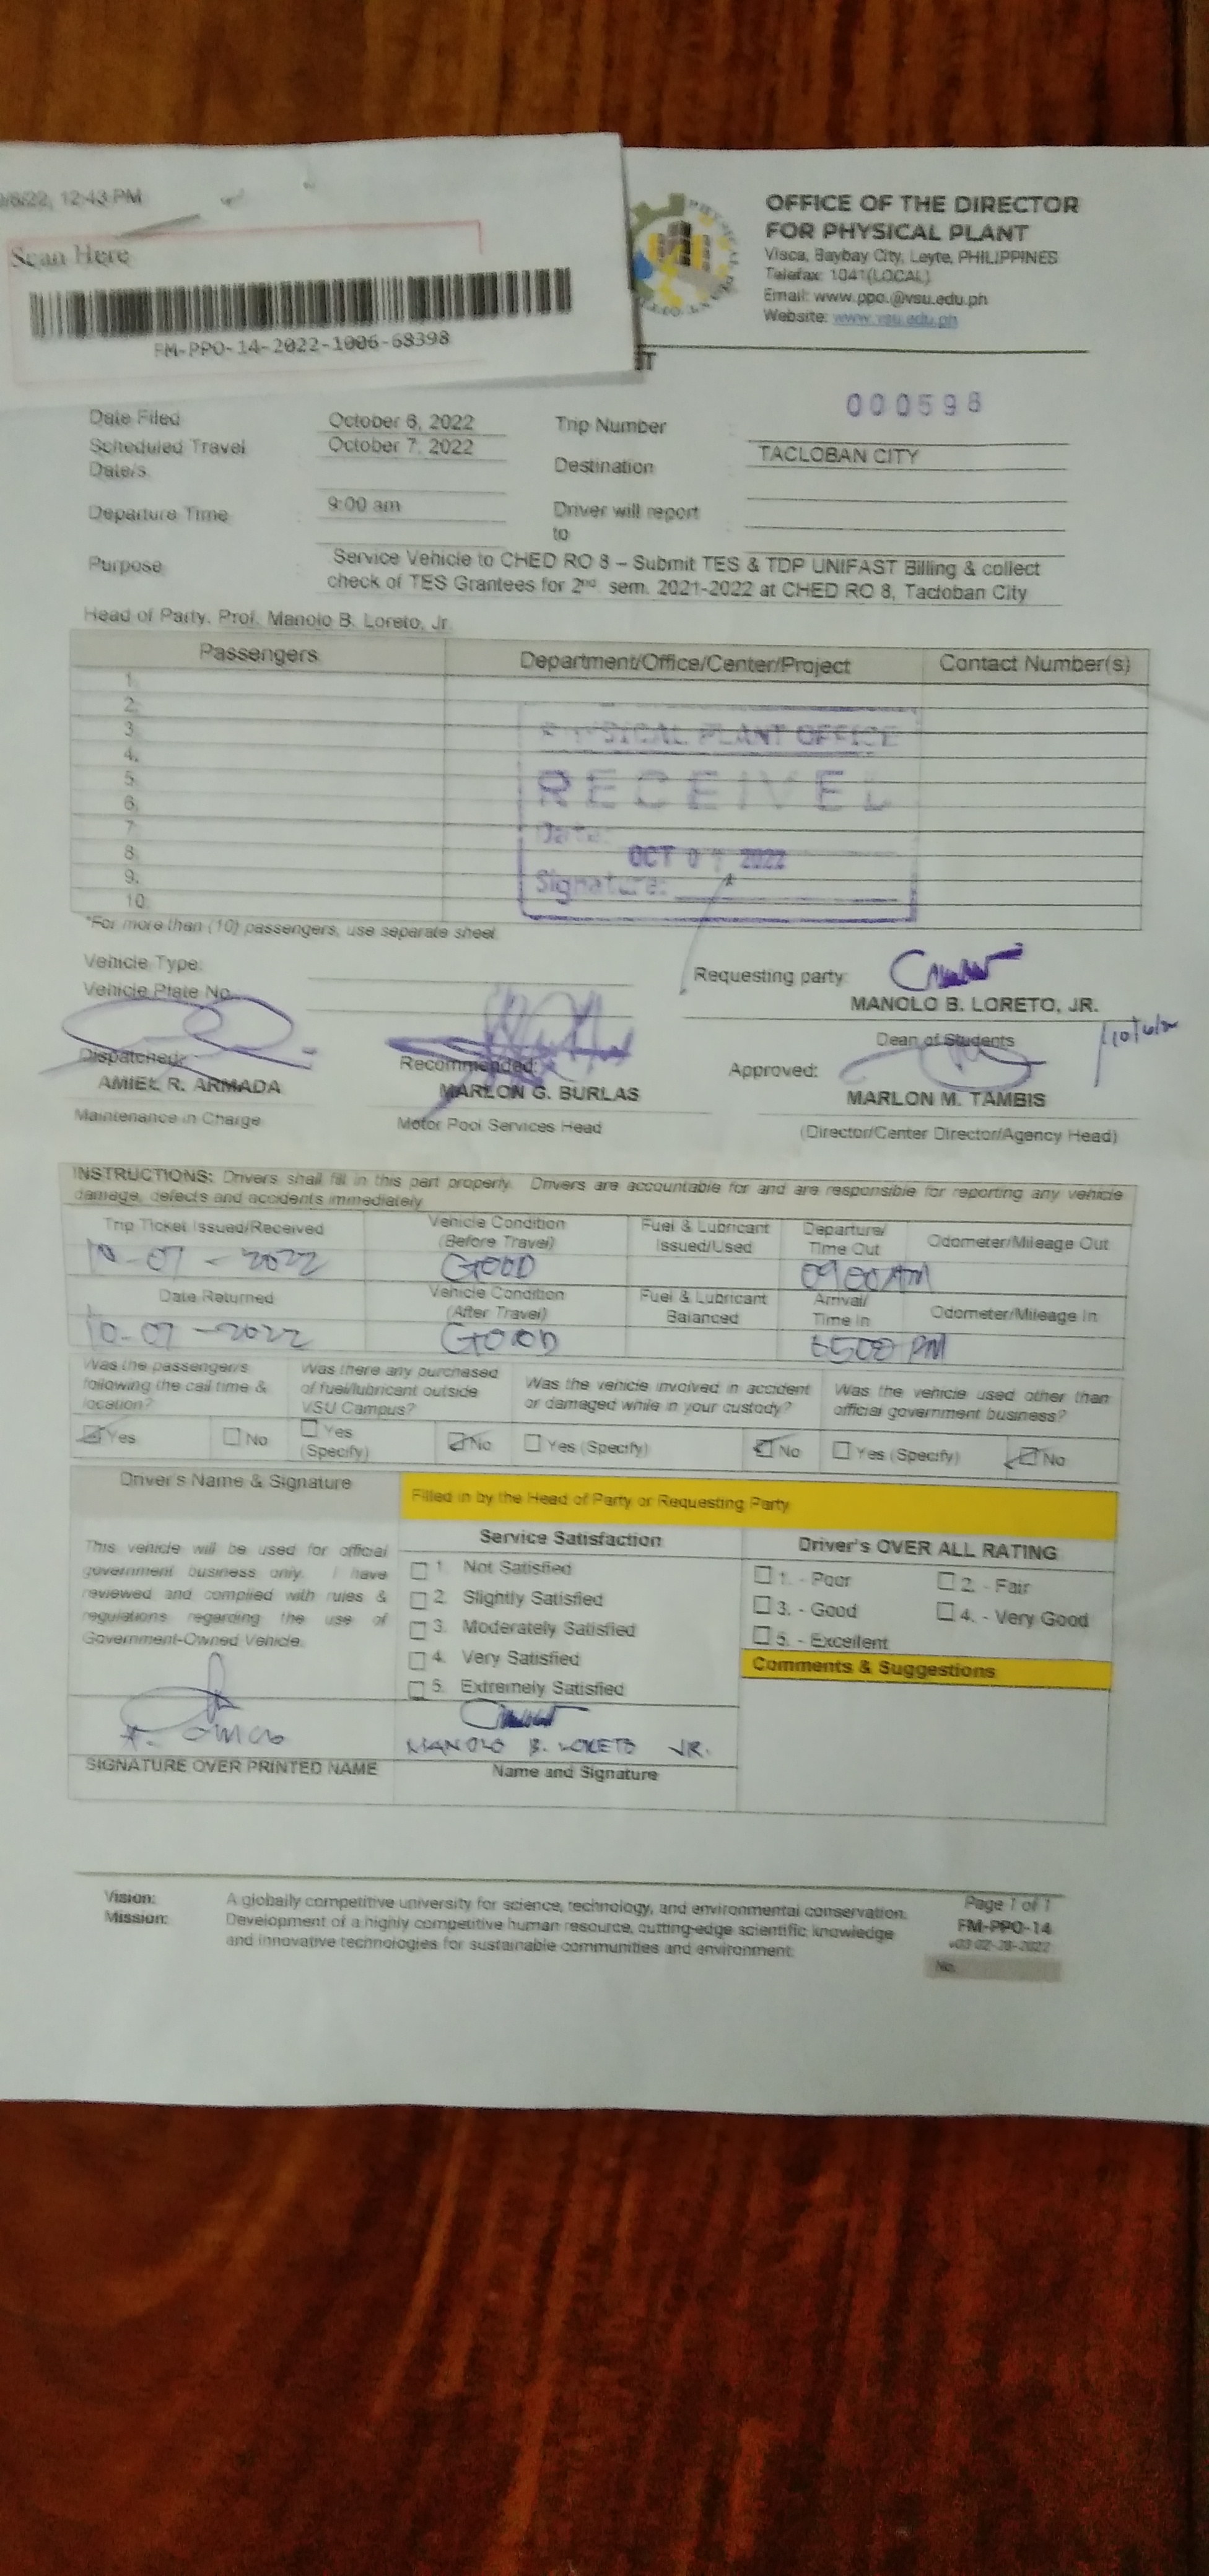 /6/22, 12:43 PM
Scan Here
FM-PPO-14-2022-1006-68398
OFFICE OF THE DIRECTOR
FOR PHYSICAL PLANT
Visca, Baybay City, Leyte, PHILIPPINES
Telefax: 1041(LOCAL)
Email: www.ppo.@vsu.edu.ph
Website: www.vsu.edu.ph
000598
Date Filed : October 6, 2022
Trip Number :
Scheduled Travel Date/s : October 7, 2022
Destination : TACLOBAN CITY
Departure Time : 9:00 am
Driver will report to :
Purpose : Service Vehicle to CHED RO 8 – Submit TES & TDP UNIFAST Billing & collect
check of TES Grantees for 2nd sem. 2021-2022 at CHED RO 8, Tacloban City
Head of Party: Prof. Manolo B. Loreto, Jr.
Passengers Department/Office/Center/Project Contact Number(s)
1.
2.
3.
4.
5.
6.
7.
8.
9.
10.
PHYSICAL PLANT OFFICE
RECEIVED
Date:
OCT 07 2022
Signature:
*For more than (10) passengers, use separate sheet.
Vehicle Type:
Vehicle Plate No.
Requesting party:
MANOLO B. LORETO, JR.
Dean of Students
10/6/22
Dispatched: Recommended: Approved:
AMIEL R. ARMADA MARLON G. BURLAS MARLON M. TAMBIS
Maintenance in Charge Motor Pool Services Head (Director/Center Director/Agency Head)
INSTRUCTIONS: Drivers shall fill in this part properly. Drivers are accountable for and are responsible for reporting any vehicle
damage, defects and accidents immediately
Trip Ticket Issued/Received Vehicle Condition (Before Travel) Fuel & Lubricant Issued/Used Departure/ Time Out Odometer/Mileage Out
10-07-2022 GOOD 0900AM
Date Returned Vehicle Condition (After Travel) Fuel & Lubricant Balanced Arrival/ Time In Odometer/Mileage In
10-07-2022 GOOD PM
Was the passenger/s following the call time & location?
Was there any purchased of fuel/lubricant outside VSU Campus?
Was the vehicle involved in accident or damaged while in your custody?
Was the vehicle used other than official government business?
Yes No Yes (Specify) No Yes (Specify) No Yes (Specify) No
Driver's Name & Signature
Filled in by the Head of Party or Requesting Party
Service Satisfaction
Driver's OVER ALL RATING
This vehicle will be used for official
government business only. I have
reviewed and complied with rules &
regulations regarding the use of
Government-Owned Vehicle.
1. Not Satisfied
2. Slightly Satisfied
3. Moderately Satisfied
4. Very Satisfied
5. Extremely Satisfied
1. - Poor 2. - Fair
3. - Good 4. - Very Good
5. - Excellent
Comments & Suggestions
MANOLO B. LORETO JR.
SIGNATURE OVER PRINTED NAME
Name and Signature
Vision: A globally competitive university for science, technology, and environmental conservation.
Mission: Development of a highly competitive human resource, cutting-edge scientific knowledge
and innovative technologies for sustainable communities and environment.
Page 1 of 1
FM-PPO-14
v03 02-28-2022
No.